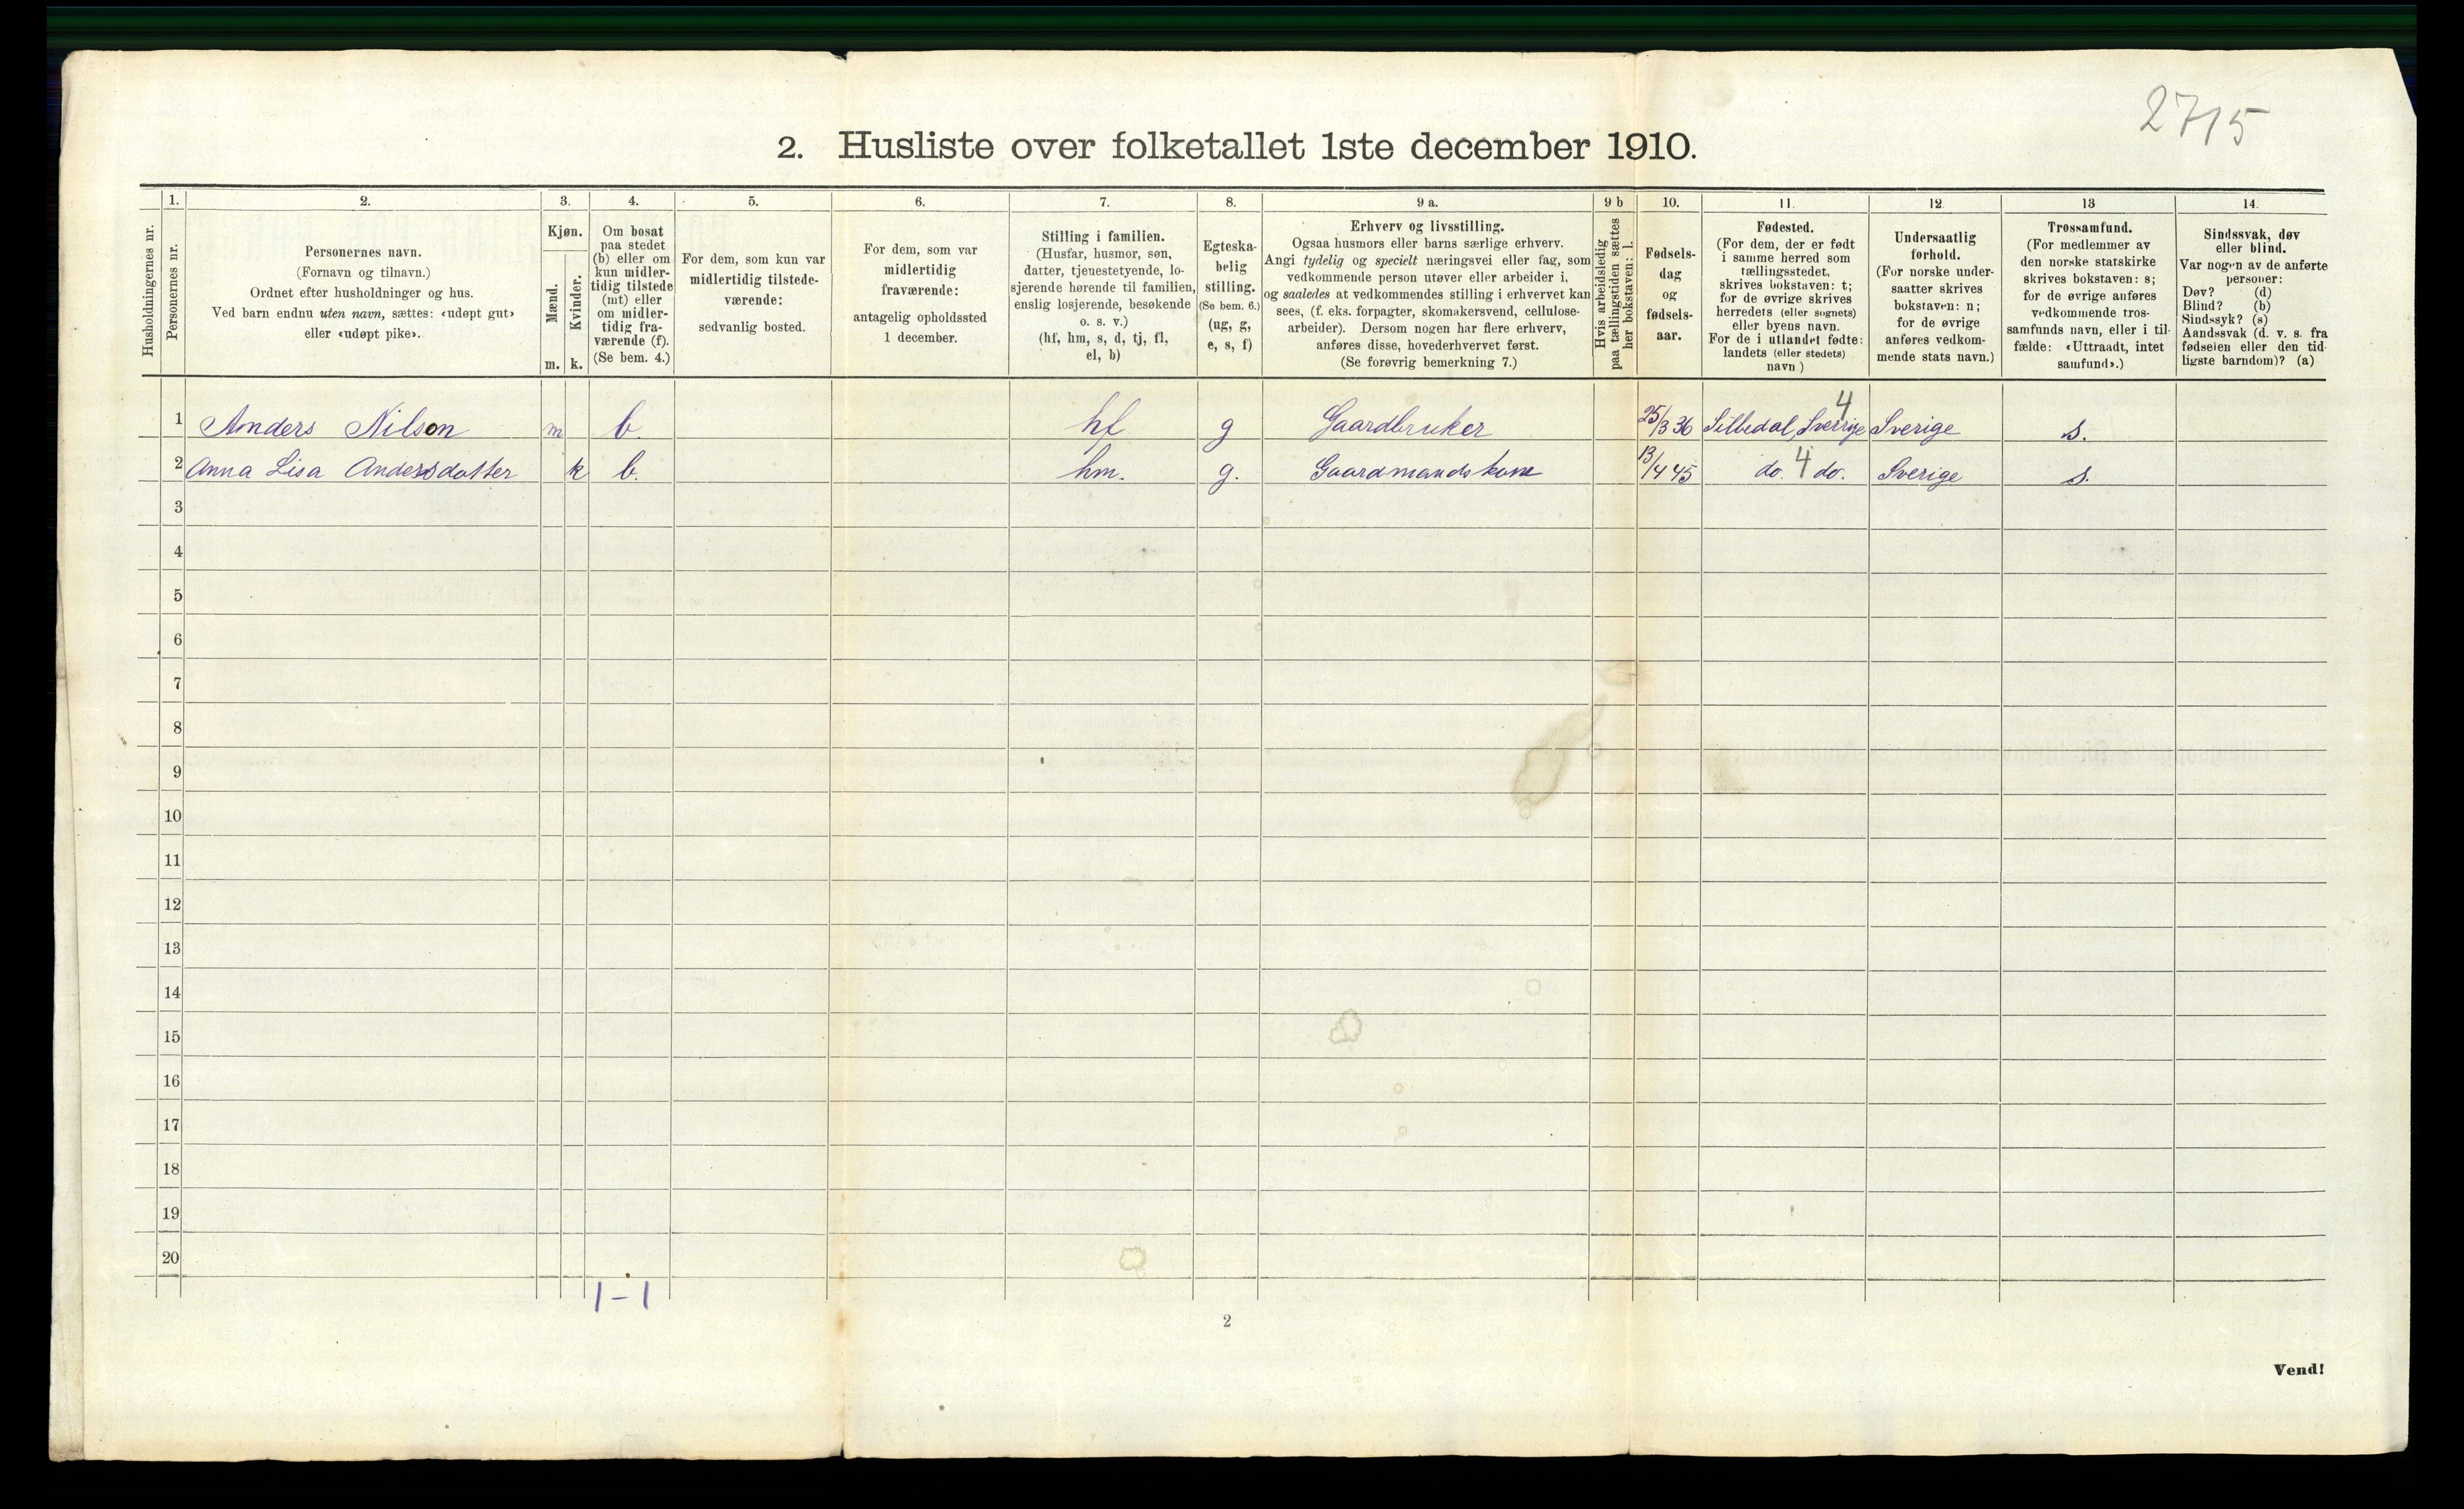 2715
2. Husliste over folketallet 1ste december 1910.
Husholdningernes nr.
1.
Personernes nr.
2.
Personernes navn.
(Fornavn og tilnavn.)
Ordnet efter husholdninger og hus.
Ved barn endnu uten navn, sættes: «udøpt gut»
eller «udøpt pike».
3.
Kjøn.
Mænd.
m.
Kvinder.
k.
4.
Om bosat
paa stedet
(b) eller om
kun midler-
tidig tilstede
(mt) eller
om midler-
tidig fra-
værende (f).
(Se bem. 4.)
5.
For dem, som kun var
midlertidig tilstede-
værende:
sedvanlig bosted.
6.
For dem, som var
midlertidig
fraværende:
antagelig opholdssted
1 december.
7.
Stilling i familien.
(Husfar, husmor, søn,
datter, tjenestetyende, lo-
sjerende hørende til familien,
enslig losjerende, besøkende
o. s. v.)
(hf, hm, s, d, tj, fl,
el, b)
8.
Egteska-
belig
stilling.
(Se bem. 6.)
(ug, g,
e, s, f)
9 a.
Erhverv og livsstilling.
Ogsaa husmors eller barns særlige erhverv.
Angi tydelig og specielt næringsvei eller fag, som
vedkommende person utøver eller arbeider i,
og saaledes at vedkommendes stilling i erhvervet kan
sees, (f. eks. forpagter, skomakersvend, cellulose-
arbeider). Dersom nogen har flere erhverv,
anføres disse, hovederhvervet først.
(Se forøvrig bemerkning 7.)
9 b
Hvis arbeidsledig
paa tællingstiden sættes
her bokstaven: l.
10.
Fødsels-
dag
og
fødsels-
aar.
11.
Fødested.
(For dem, der er født
i samme herred som
tællingsstedet,
skrives bokstaven: t;
for de øvrige skrives
herredets (eller sognets)
eller byens navn.
For de i utlandet fødte:
landets (eller stedets)
navn.)
12.
Undersaatlig
forhold.
(For norske under-
saatter skrives
bokstaven: n;
for de øvrige
anføres vedkom-
mende stats navn.)
13
Trossamfund.
(For medlemmer av
den norske statskirke
skrives bokstaven: s;
for de øvrige anføres
vedkommende tros-
samfunds navn, eller i til-
fælde: «Uttraadt, intet
samfund».)
14.
Sindssvak, døv
eller blind.
Var nogen av de anførte
personer:
Døv? (d)
Blind? (b)
Sindssyk? (s)
Aandssvak (d. v. s. fra
fødselen eller den tid-
ligste barndom)? (a)
1 Anders Nilson m b. hf g Gaardbruker 25/3 36 Sillbdal, Sverrige 4 Sverige s.
2 Anna Lisa Andersdatter k b. hm. g. Gaardmandskone 13/4 45 do. 4 do. Sverige s.
3
4
5
6
7
8
9
10
11
12
13
14
15
16
17
18
19
20
1 - 1
2
Vend!